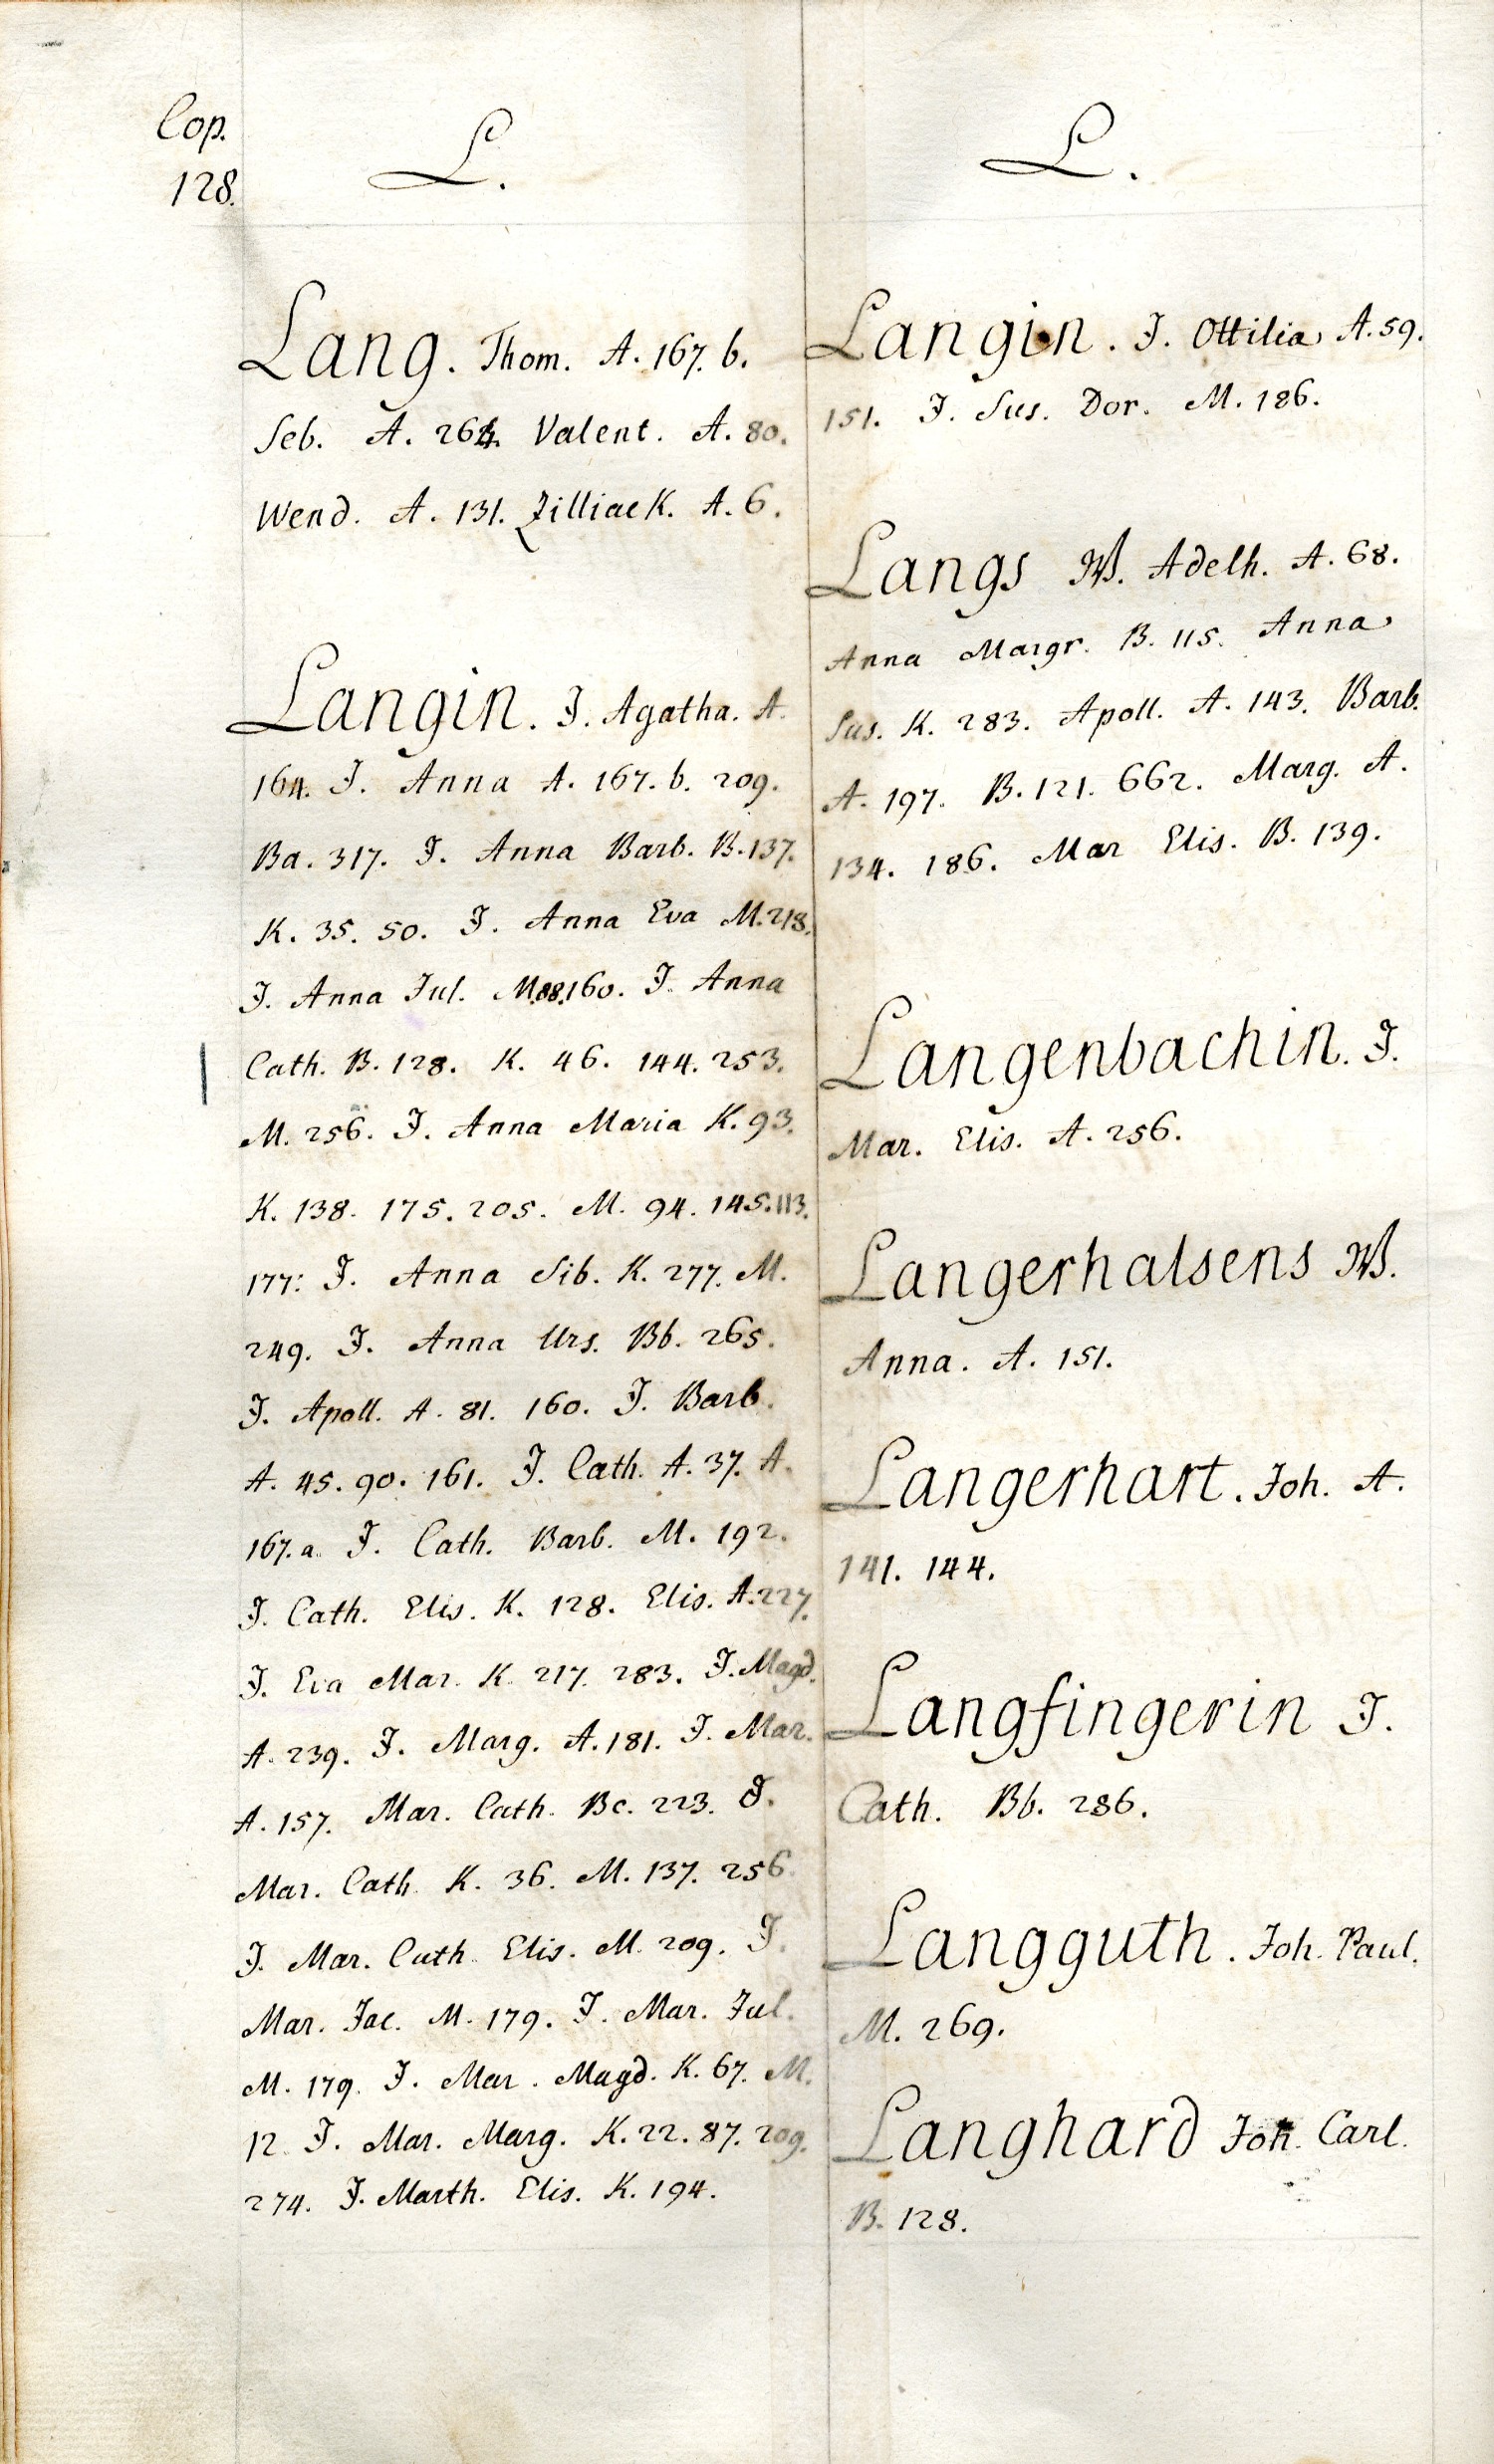 Cop.
128.
L.
Lang. Thom. A. 167. b.
Seb. A. 264. Valent. A. 80.
Wend. A. 131. Zilliack. A. 6.
Langin. J. Agatha. A.
164. J. Anna A. 167. b. 209.
Ba. 317. J. Anna Barb. B. 137.
K. 35. 50. J. Anna Eva M. 218.
J. Anna Jul. M. 88. 160. J. Anna
Cath. B. 128. K. 46. 144. 253.
M. 256. J. Anna Maria K. 93.
K. 138. 175. 205. M. 94. 145. 113.
177: J. Anna Sib. K. 277. M.
249. J. Anna Urs. Bb. 265.
J. Apoll. A. 81. 160. J. Barb.
A. 45. 90. 161. J. Cath. A. 37. A.
167. a. J. Cath. Barb. M. 192.
J. Cath. Elis. K. 128. Elis. A. 227.
J. Eva Mar. K. 217. 283. J. Magd.
A. 239. J. Marg. A. 181. J. Mar.
A. 157. Mar. Cath. Bc. 223. J.
Mar. Cath. K. 36. M. 137. 256.
J. Mar. Cath. Elis. M. 209. J.
Mar. Jac. M. 179. J. Mar. Jul.
M. 179. J. Mar. Magd. K. 67. M.
12. J. Mar. Marg. K. 22. 87. 209.
274. J. Marth. Elis. K. 194.
L.
Langin. J. Ottilia A. 59.
151. J. Sus. Dor. M. 186.
Langs W. Adelh. A. 68.
Anna Margr. B. 115. Anna
Sus. K. 283. Apoll. A. 143. Barb.
A. 197. B. 121. 662. Marg. A.
134. 186. Mar Elis. B. 139.
Langenbachin. J.
Mar. Elis. A. 256.
Langerhalsens W.
Anna. A. 151.
Langerhart. Joh. A.
141. 144.
Langfingerin J.
Cath. Bb. 286.
Langguth. Joh. Paul.
M. 269.
Langhard Joh. Carl.
B. 128.